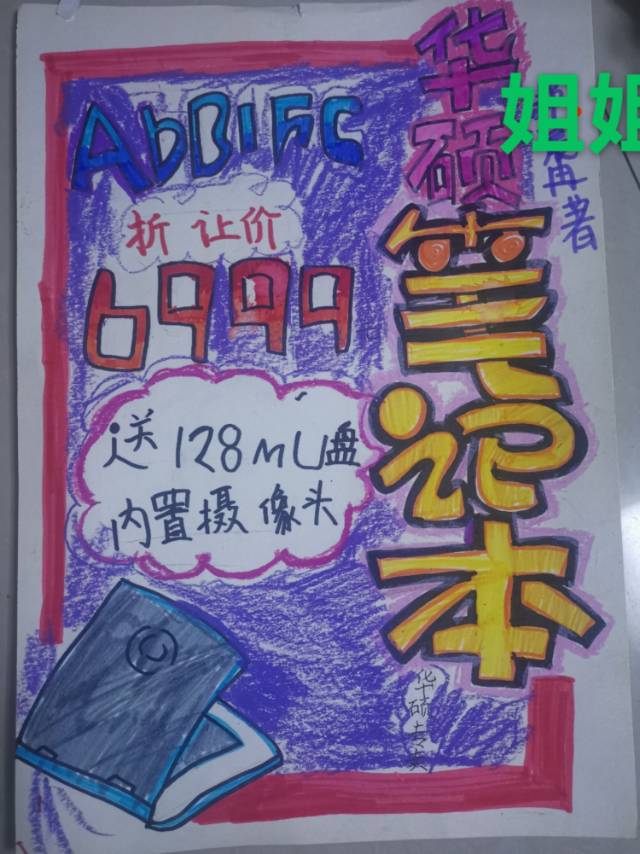 华硕笔记本
姐姐
再者
AbB1FC
折 让价
6999
送128MU盘
内置摄像头
华硕专卖